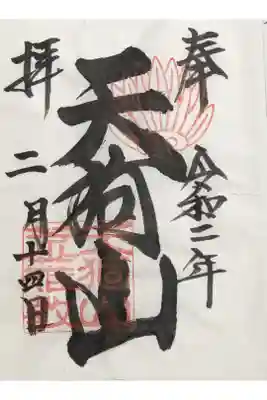 奉拝
令和二年
天狗山
二月十四日